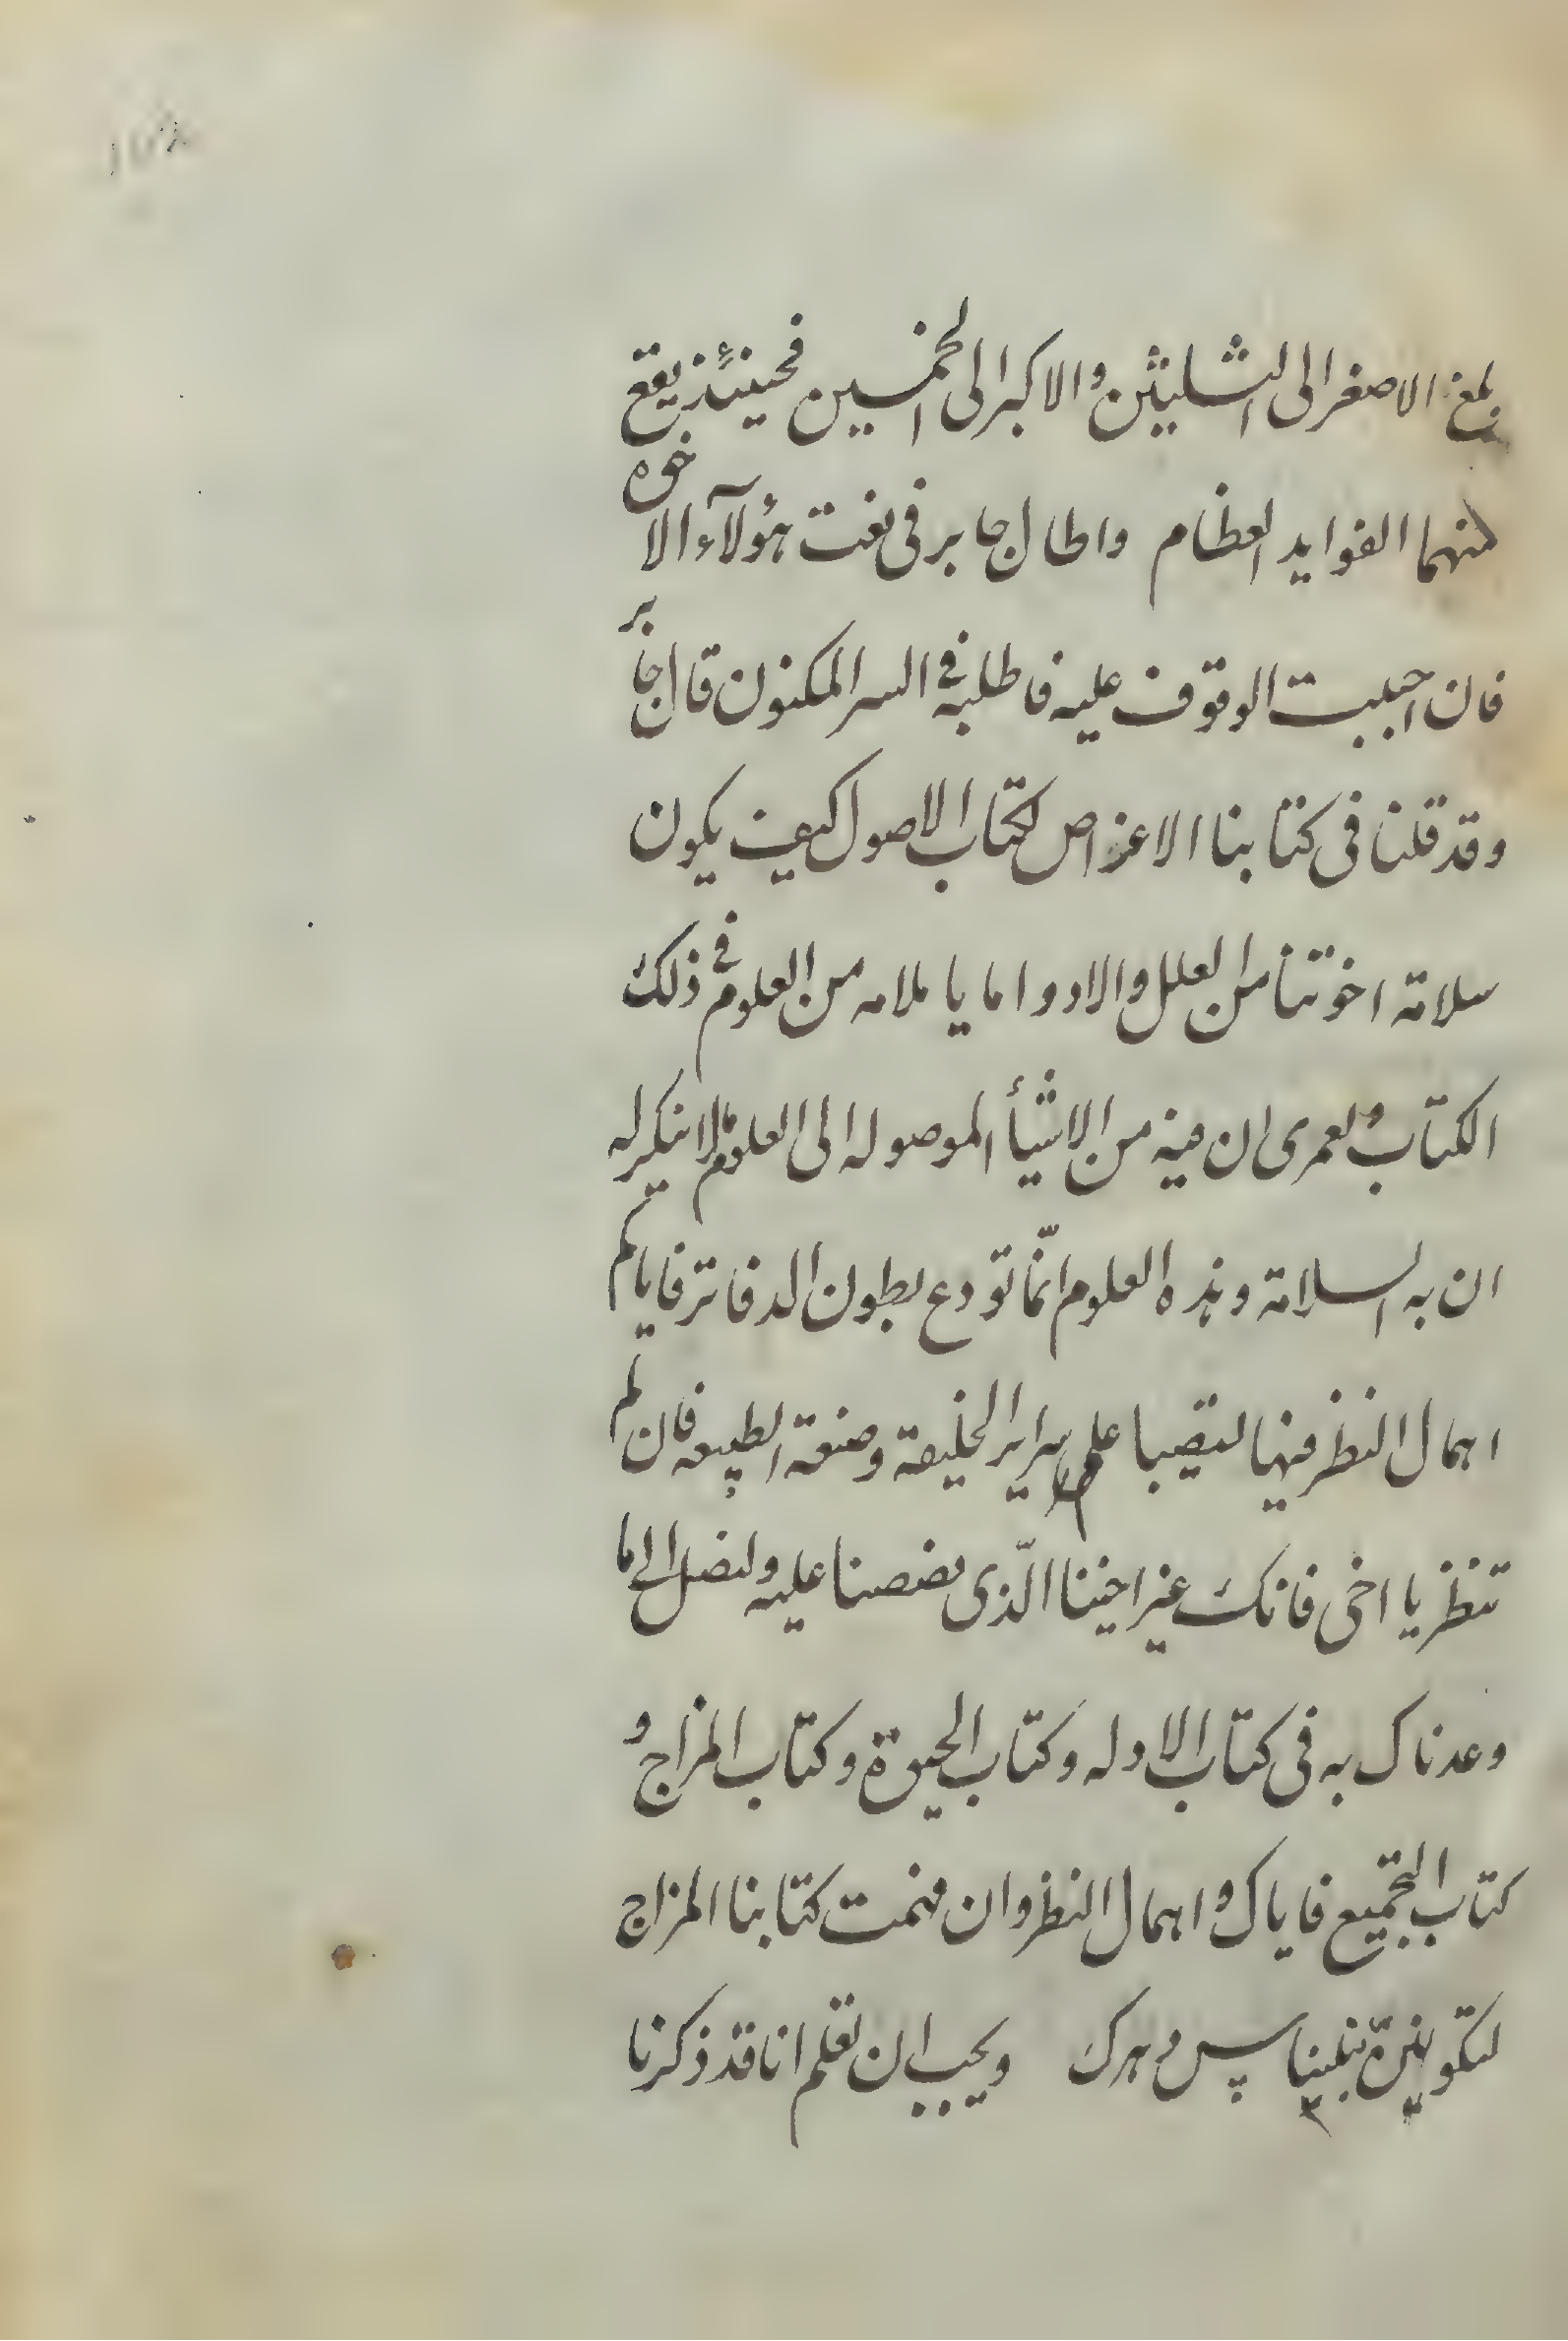 بلغ الاصغر الى الثلثين والاكبر الى الخمسين فحينئذ يقع
منهما الفوايد العظام واطال جابر فى نعت هؤلآء الاخوه
فان احببت الوقوف عليه فاطلبه فى السر المكنون قال جابر
وقد قلنا فى كتابنا الاعراض لكتاب الاصول كيف يكون
سلامة اخوتنا من العلل والادوا ما يا ملامه من العلوم فى ذلك
الكتاب ولعمرى ان فيه من الاشيآ الموصوله الى العلوم ما لا ينكر له
ان به السلامة وهذه العلوم انّما تودع بطون الدفاتر فاياكم
اهمال النظر فيها لتصيبا على سراير الخليقة وصنعة الطبيعه فان لم
تنظر يا اخى فانك غير اخينا الّذى نصصنا عليه ولتصل الى ما
وعدناك به فى كتاب الادله وكتاب الحيوة وكتاب المزاج و
كتاب التجميع فاياك واهمال النظر وان فهمت كتابنا المزاج
لتكونن نبينا دهرك ويجب ان تعلم انا قد ذكرنا